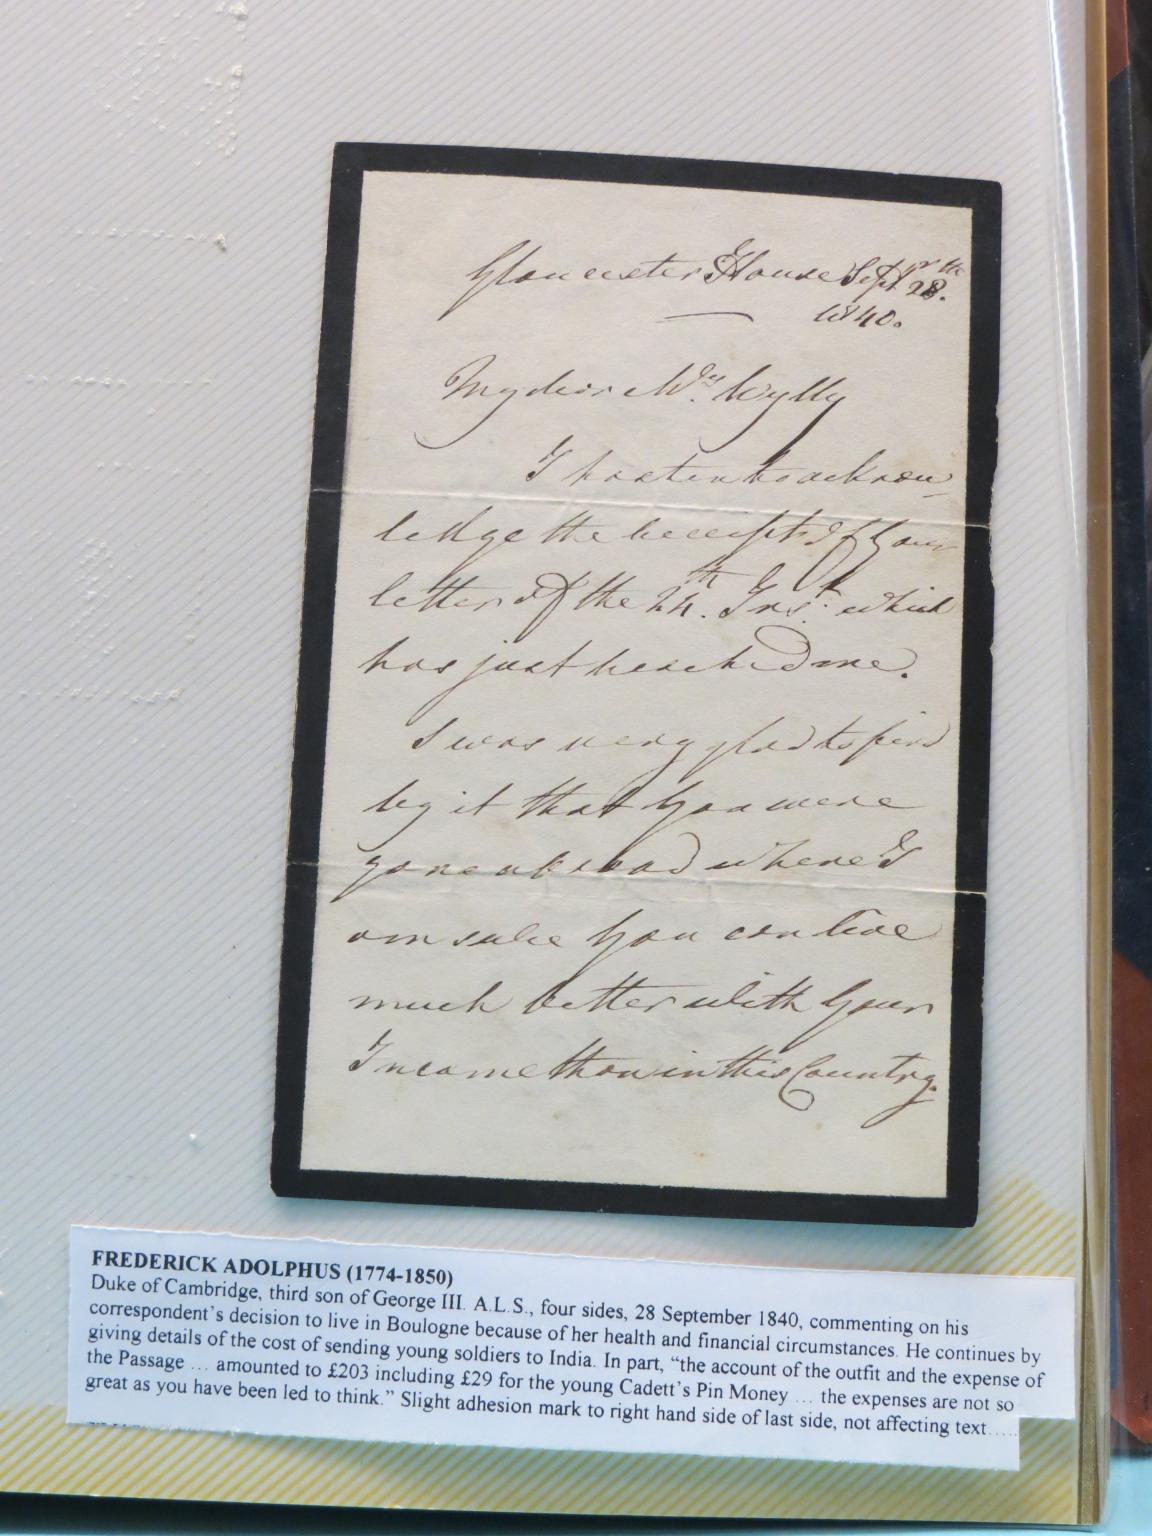 Gloucester House Sept.br 28.th
1840.
My dear Mrs. Wylly
I hasten to acknow
ledge the receipt of Your
letter of the 24th. Inst. which
has just reached me.
I was very glad to find
by it that You were
gone abroad where I
am sure You can live
much better with Your
Income than in this Country.
FREDERICK ADOLPHUS (1774-1850)
Duke of Cambridge, third son of George III. A.L.S., four sides, 28 September 1840, commenting on his
correspondent's decision to live in Boulogne because of her health and financial circumstances. He continues by
giving details of the cost of sending young soldiers to India. In part, "the account of the outfit and the expense of
the Passage ... amounted to £203 including £29 for the young Cadett's Pin Money ... the expenses are not so
great as you have been led to think." Slight adhesion mark to right hand side of last side, not affecting text.....